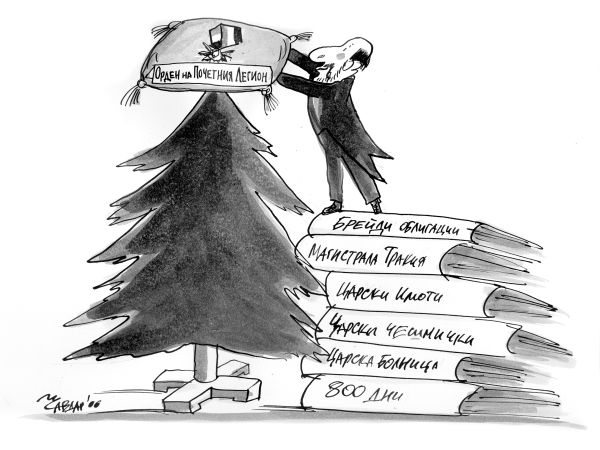 Орден на Почетния Легион
Брейди облигации
Магистрала Тракия
Царски имоти
Царски чешмички
Царска болница
800 дни
Чавдар '06